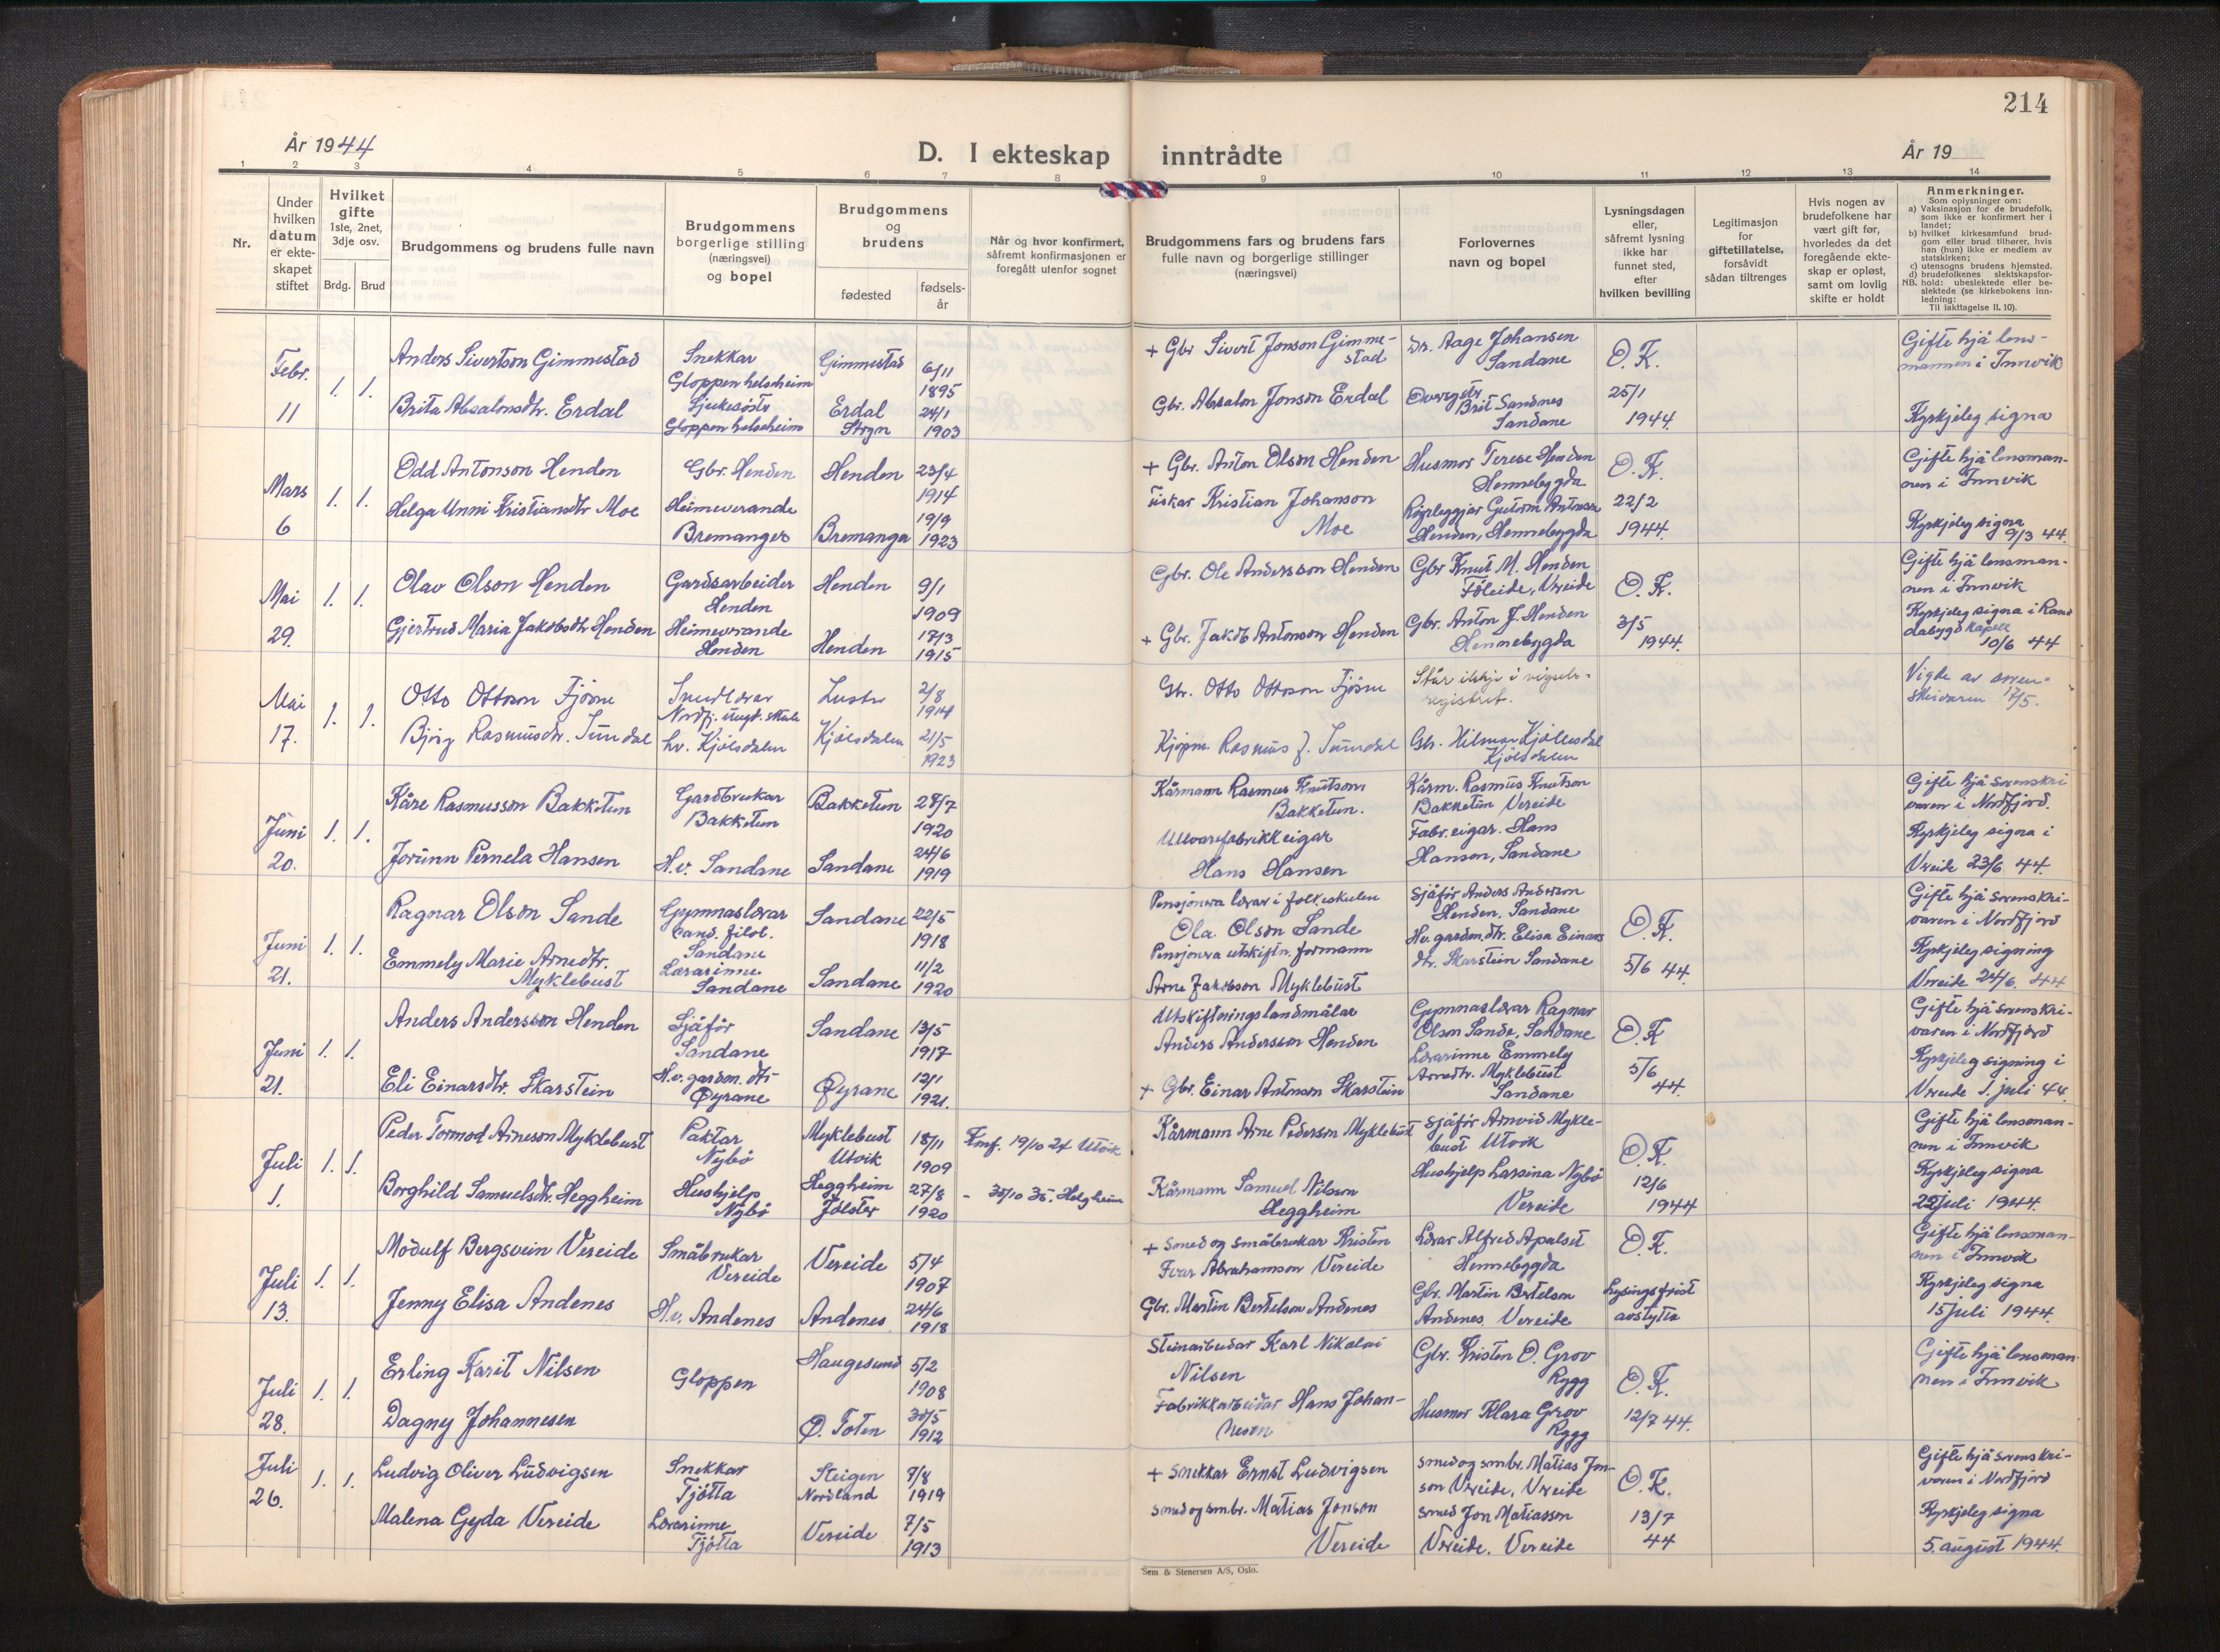 214
År 1944
D. I ekteskap inntrådte
År 19
1 2 3 4 5 6 7 8 9 10 11 12 13 14
Nr.
Under
hvilken
datum
er ekte-
skapet
stiftet
Hvilket
gifte
1ste, 2net,
3dje osv.
Brdg. Brud
Brudgommens og brudens fulle navn
Brudgommens
borgerlige stilling
(næringsvei)
og bopel
Brudgommens
og
brudens
fødested
fødsels-
år
Når og hvor konfirmert,
såfremt konfirmasjonen er
foregått utenfor sognet
Brudgommens fars og brudens fars
fulle navn og borgerlige stillinger
(næringsvei)
Forlovernes
navn og bopel
Lysningsdagen
eller,
såfremt lysning
ikke har
funnet sted,
efter
hvilken bevilling
Legitimasjon
for
giftetillatelse,
forsåvidt
sådan tiltrenges
Hvis nogen av
brudefolkene har
vært gift før,
hvorledes da det
foregående ekte-
skap er opløst,
samt om lovlig
skifte er holdt
Anmerkninger.
Som oplysninger om:
a) Vaksinasjon for de brudefolk,
som ikke er konfirmert her i
landet;
b) hvilket kirkesamfund brud-
gom eller brud tilhører, hvis
han (hun) ikke er medlem av
statskirken;
c) utensogns brudens hjemsted.
d) brudefolkenes slektskapsfor-
NB. hold: ubeslektede eller be-
slektede (se kirkebokens inn-
ledning:
Til iakttagelse II. 10).
Febr.
11
1. 1.
Anders Sivertson Gimmestad
Brita Absalonsdtr. Erdal
Snekkar
Gloppen helseheim
Sjukesöstr
Gloppen helseheim
Gimmestad
Erdal
Stryn
6/11
1895
24/1
1903
+ Gbr Sivert Jonson Gimme-
stad
Gbr. Absalon Jonson Erdal
Dr. Aage Johansen
Sandane
Oversystr
Brit Sandnes
Sandane
O.K.
25/1
1944.
Gifte hjå lens-
mannen i Innvik
Kyrkjeleg signa
Mars
6
1. 1.
Odd Antonson Henden
Helga Unni Kristiansdtr Moe
Gbr. Henden
Heimeverande
Bremanger
Henden
Bremanger
23/4
1914
19/9
1923
+ Gbr. Anton Olson Henden
Fiskar Kristian Johanson
Moe
Husmor Terese Henden
Hennebygda
Røyrleggjar Guttorm Antonson
Henden, Hennebygda
O.K.
22/2
1944.
Gifte hjå lensman-
nen i Innvik
Kyrkjeleg signa
9/3 44.
Mai
29.
1. 1.
Olav Olson Henden
Gjertrud Maria Jakobsdtr Henden
Gardsarbeider
Henden
Heimeverande
Henden
Henden
Henden
9/1
1909
17/3
1915
Gbr. Ole Andersson Henden
+ Gbr. Jakob Antonson Henden
Gbr Knut M. Henden
Föleide, Vereide
Gbr. Anton J. Henden
Hennebygda
O.K.
3/5
1944.
Gifte hjå lensman-
nen i Innvik
Kyrkjeleg signa i Ran
dabygd kapell
10/6 44
Mai
17.
1. 1.
Otto Ottoson Fjösne
Bjørg Rasmusdtr. Tundal
Snedlærar
Nordfj. ungd. skule
hv. Kjölsdalen
Luster
Kjölsdalen
2/8
1914
21/5
1923
Gbr. Otto Ottoson Fjösne
Kjøpm. Rasmus J. Tundal
Står ikkje i vigsels-
registret.
Gbr. Hilmar Kjöllesdal
Kjölsdalen
Vigde av soren-
skrivaren 17/5.
Juni
20.
1. 1.
Kåre Rasmusson Bakketun
Jorunn Pernela Hansen
Gardbrukar
Bakketun
H.v. Sandane
Bakketun
Sandane
28/7
1920
24/6
1919
Kårmann Rasmus Knutson
Bakketun.
Ullvarefabrikkeigar
Hans Hansen
Kårm. Rasmus Knutson
Bakketun Vereide
Fabr. eigar. Hans
Hanson, Sandane
Gifte hjå sorenskri
varen i Nordfjord.
Kyrkjeleg signa i
Vreide 23/6 44.
Juni
21.
1. 1.
Ragnar Olson Sande
Emmely Marie Arnedtr.
Myklebust
Gymnaslærar
Cand. filol.
Sandane
Lærarinne
Sandane
Sandane
Sandane
22/5
1918
11/2
1920
Pensjonera lærar i folkeskulen
Ola Olson Sande
Pensjonera utskiftn. formann
Arne Jakobson Myklebust
Sjåför Anders Anderson
Henden, Sandane
Hv. gardm.dtr. Elisa Einars
dtr. Skarstein Sandane
O.K.
5/6 44.
Gifte hjå sorenskri-
varen i Nordfjord
Kyrkjeleg signing
Vreide 24/6. 44
Juni
21.
1. 1.
Anders Andersson Henden
Eli Einarsdtr. Skarstein
Sjåför
Sandane
H.v. gardm. dtr
Øyrane
Sandane
Øyrane
13/5
1917
12/1
1921.
Utskiftningslandmålar
Anders Andersson Henden
+ Gbr. Einar Antonson Skarstein
Gymnaslærar Ragnar
Olson Sande, Sandane
Lærarinne Emmely
Arnedtr. Myklebust
Sandane
O.K
5/6
44.
Gifte hjå sorenskri-
varen i Nordfjord
Kyrkjeleg signing i
Vreide 1. juli 44.
Juli
1.
1. 1.
Peder Tormod Arneson Myklebust
Borghild Samuelsdtr. Heggheim
Paktar
Nybö
Hushjelp
Nybö
Myklebust
Utvik
Heggheim
Jölster
18/11
1909
27/8
1920
Kmf. 19/10 24 Utvik
- 30/10 35. Helgheim
Kårmann Arne Pederson Myklebust
Kårmann Samuel Nilson
Heggheim
Sjåför Arnvid Mykle-
bust Utvik
Hushjelp Larsina Nybö
Vereide
O.K.
12/6
1944
Gifte hjå lensman-
nen i Innvik
Kyrkjeleg signa
22juli 1944.
Juli
13.
1. 1.
Modulf Bergsvein Vereide
Jenny Elisa Andenes
Småbrukar
Vereide
H.v. Andenes
Vereide
Andenes
5/4
1907
24/6
1918
+ Smed og småbrukar Kristen
Ivar Abrahamson Vereide
Gbr. Martin Bertelson Andenes
Lærar Alfred Apalset
Hennebygda
Gbr. Martin Bertelson
Andenes Vereide
O.K.
Lysingsfrist
avstytta
Gifte hjå lensman-
nen i Innvik
Kyrkjeleg signa
15 juli 1944.
Juli
28.
1. 1.
Erling Karit Nilsen
Dagny Johannesen
Gloppen
Haugesund
Ø. Toten
5/2
1908
30/5
1912
Steinarbeidar Karl Nikolai
Nilsen
Fabrikkarbeidar Hans Johan-
neson
Gbr. Kristen O. Grov
Rygg
Husmor Klara Grov
Rygg
O.K.
12/7 44.
Gifte hjå lensman
nen i Innvik
Juli
26.
1. 1.
Ludvig Oliver Ludvigsen
Malena Gyda Vereide
Snekkar
Tjötta
Lærarinne
Tjötta
Steigen
Nordland
Vereide
7/8
1919
7/5
1913
+ Snekkar Ernst Ludvigsen
Smed og smbr. Matias Jonson
Vereide
Smed og smbr. Matias Jon-
son Vereide, Vreide
Smed Jon Matiasson
Vereide. Vereide
O.K.
13/7
44
Gifte hjå sorenskri-
varen i Nordfjord
Kyrkjeleg signa
5. august 1944.
Sem & Stenersen A/S, Oslo.